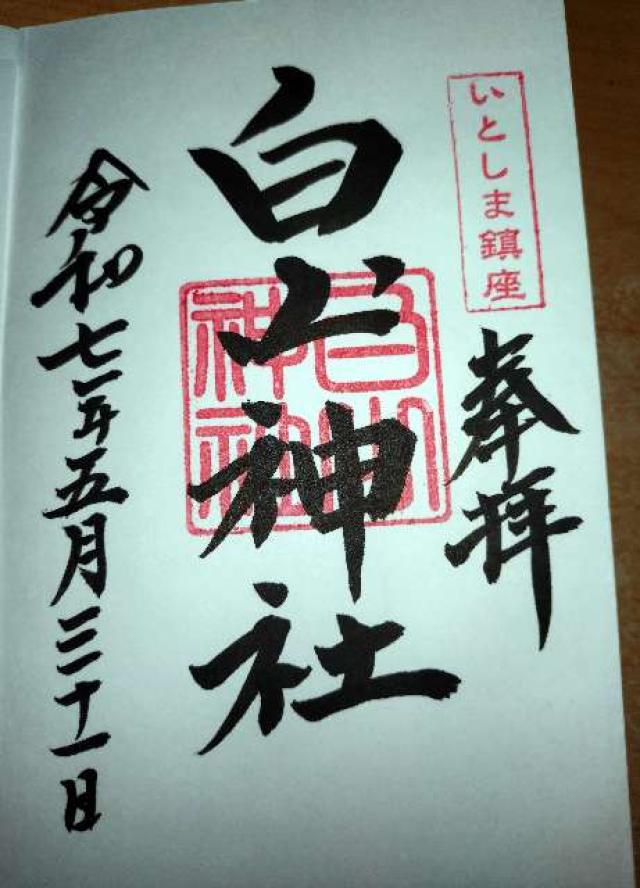 いとしま鎮座
奉拝
白山神社
白山神社
令和七年五月三十一日